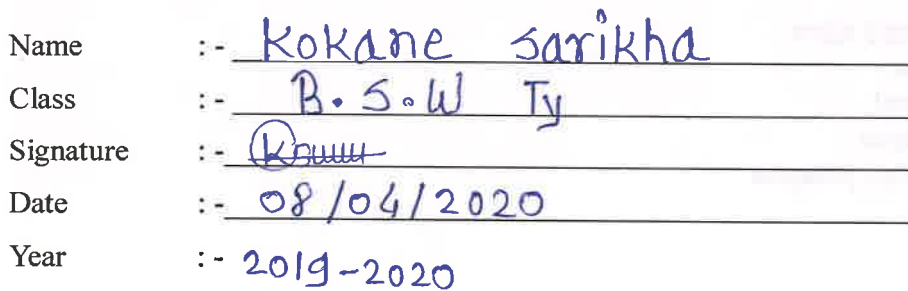 Name :- Kokane Sarikha
Class :- B.S.W Ty
Signature :-
Date :- 08/04/2020
Year :- 2019-2020